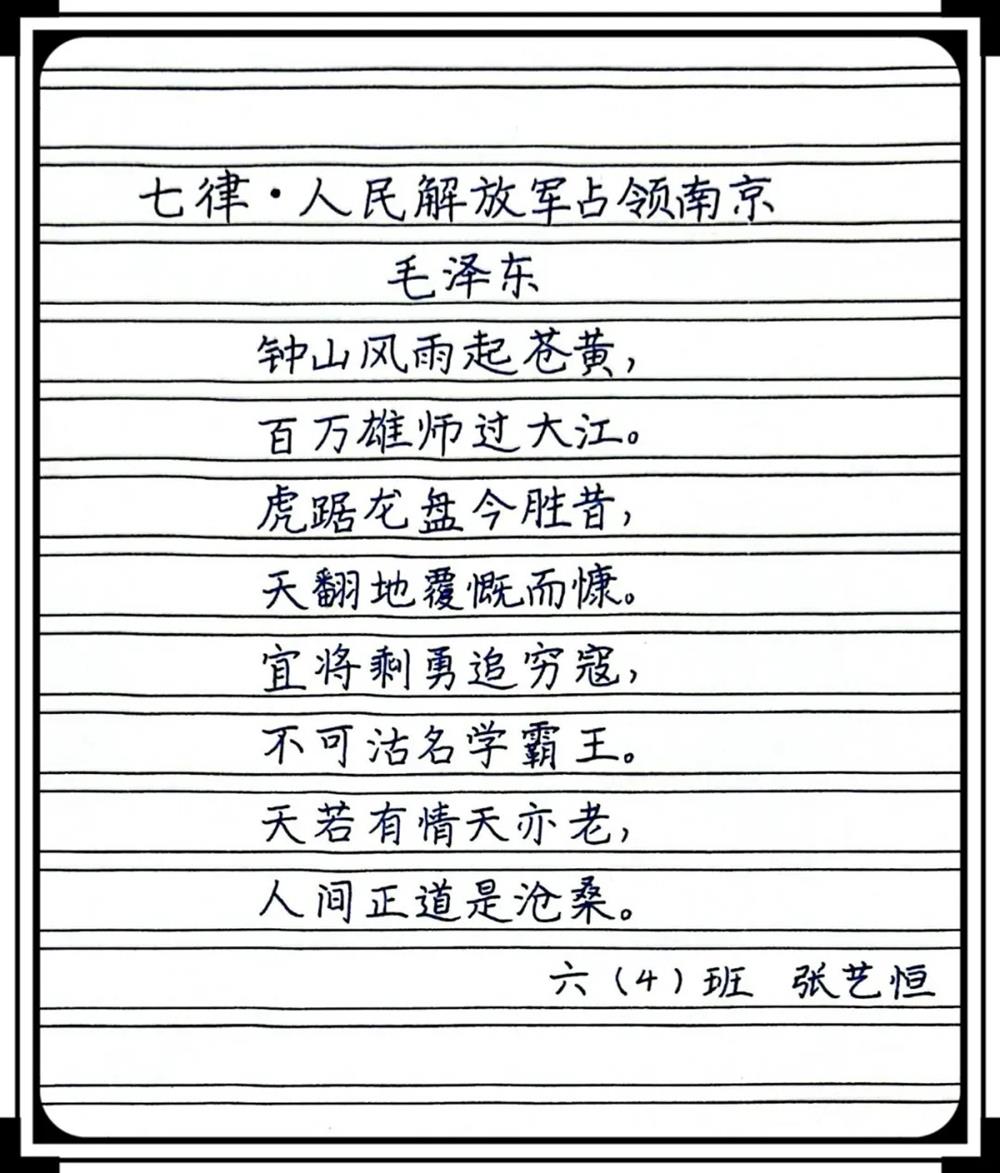 七律·人民解放军占领南京
毛泽东
钟山风雨起苍黄，
百万雄师过大江。
虎踞龙盘今胜昔，
天翻地覆慨而慷。
宜将剩勇追穷寇，
不可沽名学霸王。
天若有情天亦老，
人间正道是沧桑。
六（4）班 张艺恒